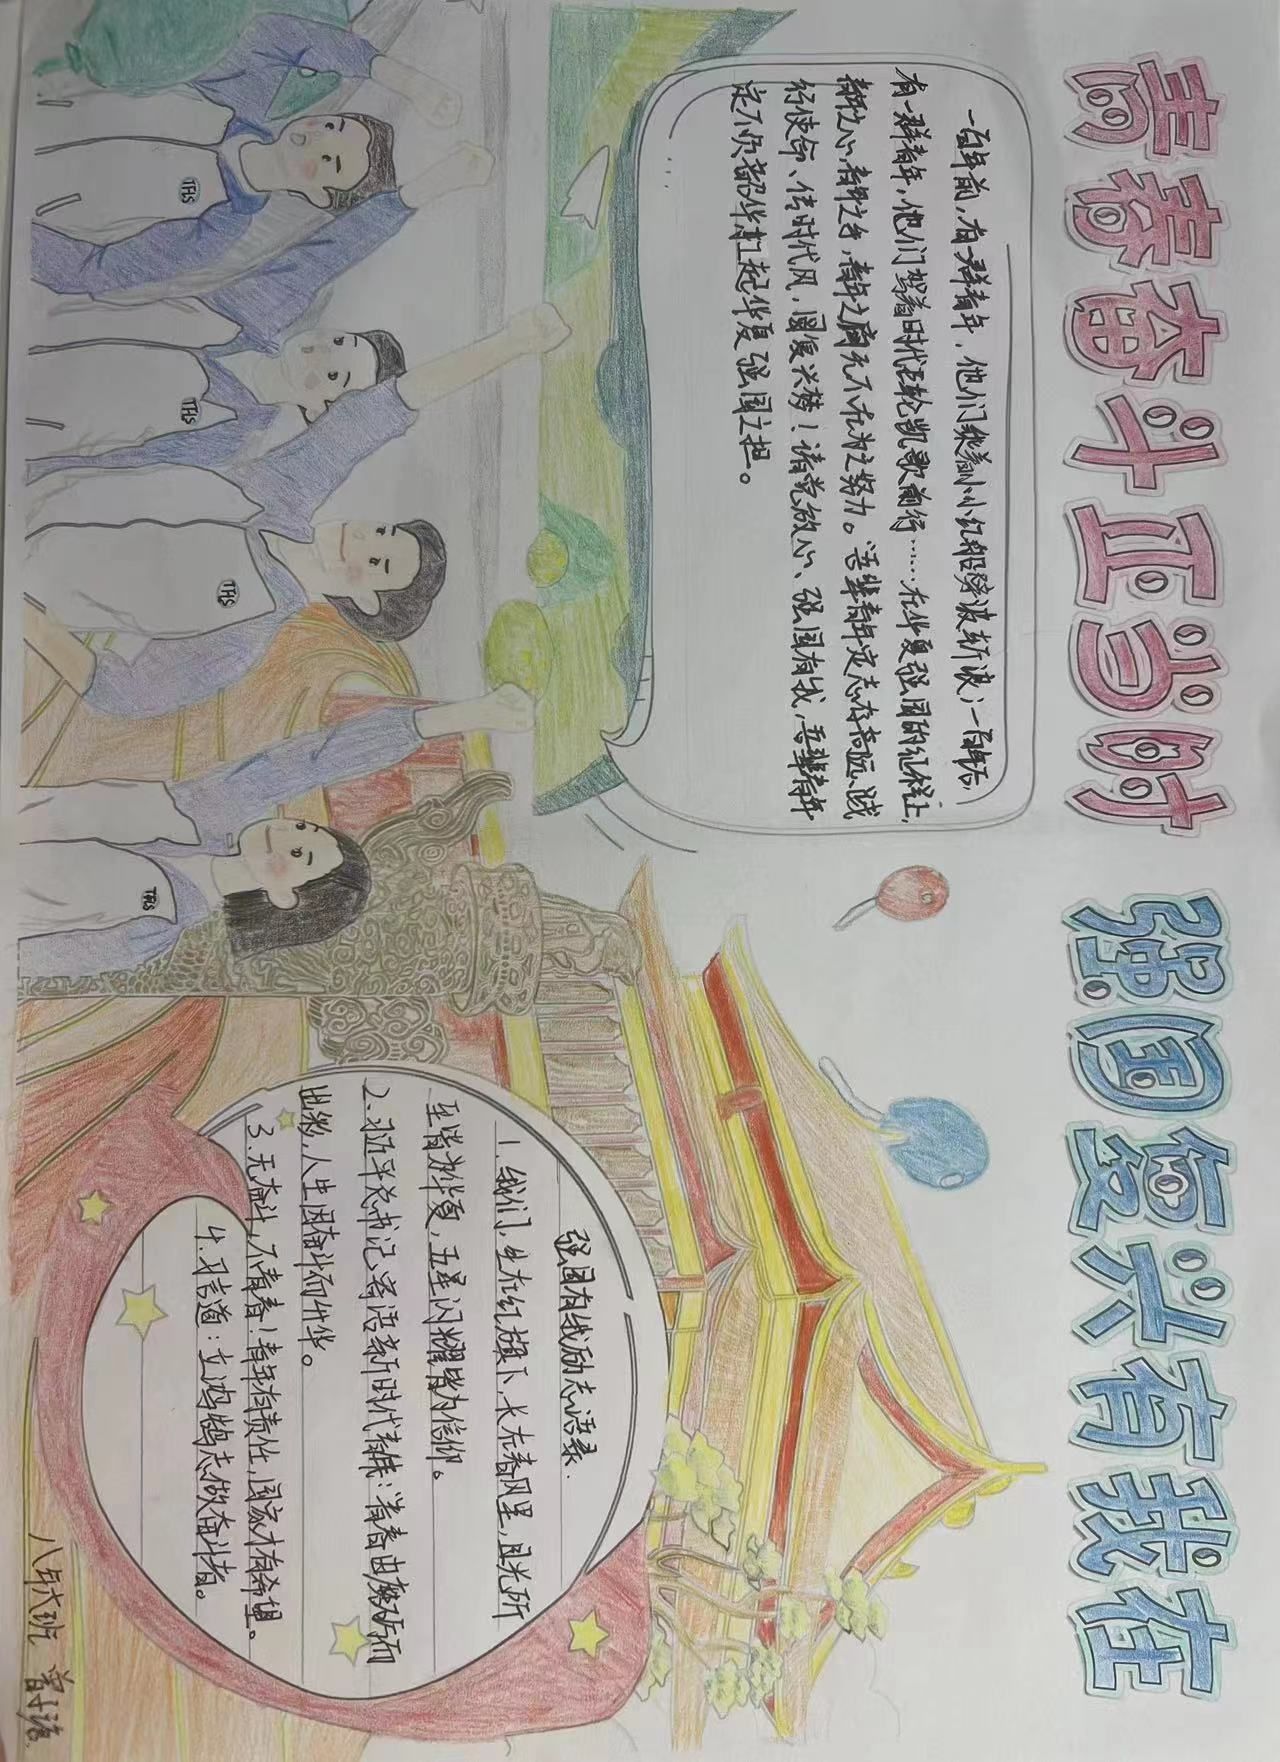 青春奋斗正当时
强国复兴有我在
一百年前,有一群青年,他们乘着小小红船劈波斩浪;一百年后,
有一群青年,他们驾着时代巨轮凯歌前行……在华夏强国的征程上,
青年之心,青年之力,青年之声无不在为之努力。吾辈青年定志存高远、践
行使命、传时代风,圆复兴梦!请党放心、强国有我,吾辈青年
定不负韶华,扛起华夏强国之担。
……
强国有我励志语录.
1.我们,生在红旗下,长在春风里,目光所
至皆为华夏,五星闪耀皆为信仰。
2.习近平总书记寄语新时代青年:青春由磨砺而
出彩,人生因奋斗而升华。
3.无奋斗,不青春!青年有责任,国家才有希望。
4.习言道:立鸿鹄志做奋斗者。
THS
THS
THS
THS
八年六班 曾